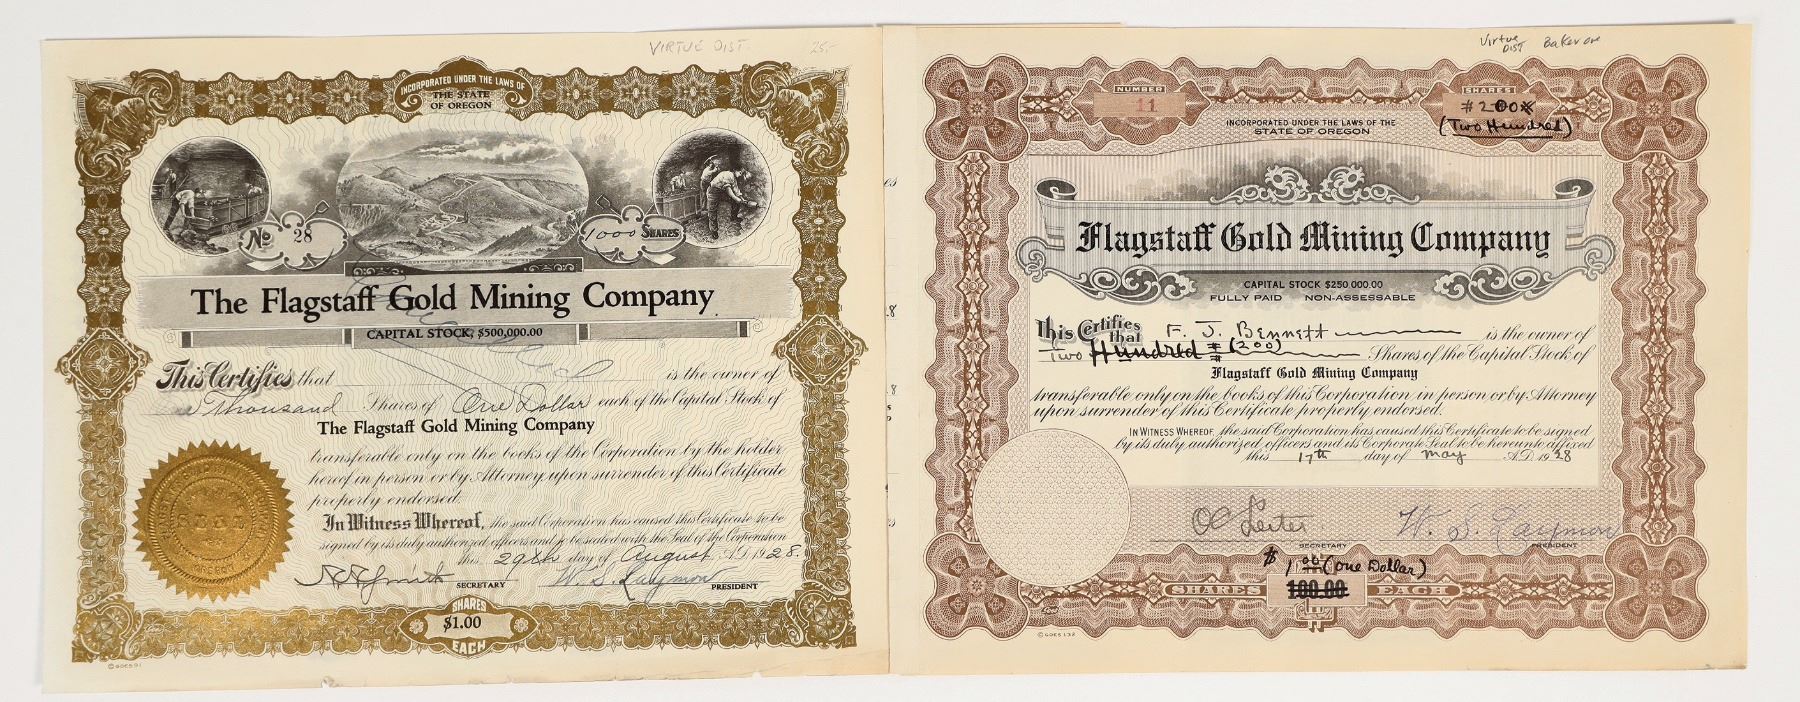 VIRTUE DIST.
25-
INCORPORATED UNDER THE LAWS OF
THE STATE
OF OREGON
No 28
1000 SHARES
The Flagstaff Gold Mining Company
CAPITAL STOCK, $500,000.00
This Certifies that is the owner of
Thousand Shares of One Dollar each of the Capital Stock of
The Flagstaff Gold Mining Company
transferable only on the books of the Corporation by the holder
hereof in person or by Attorney upon surrender of this Certificate
properly endorsed.
In Witness Whereof, the said Corporation has caused this Certificate to be
signed by its duly authorized officers and to be sealed with the Seal of the Corporation
this 29th day of August A.D. 1928.
SEAL
OREGON
SECRETARY
W. S. Laymon PRESIDENT
SHARES
$1.00
EACH
© GOES 91
Virtue
DIST Baker ore
NUMBER
11
SHARES
#200x
(Two Hundred)
INCORPORATED UNDER THE LAWS OF THE
STATE OF OREGON
Flagstaff Gold Mining Company
CAPITAL STOCK $250 000.00
FULLY PAID NON-ASSESSABLE
This Certifies that F. J. Bennett is the owner of
Two Hundred # (200) Shares of the Capital Stock of
Flagstaff Gold Mining Company
transferable only on the books of this Corporation in person or by Attorney
upon surrender of this Certificate properly endorsed.
IN WITNESS WHEREOF, the said Corporation has caused this Certificate to be signed
by its duly authorized officers and its Corporate Seal to be hereunto affixed
this 17th day of May A.D. 1928
OC Leiter
W. S. Laymon
SECRETARY
PRESIDENT
$1.00 (one Dollar)
SHARES 100.00 EACH
© GOES 132